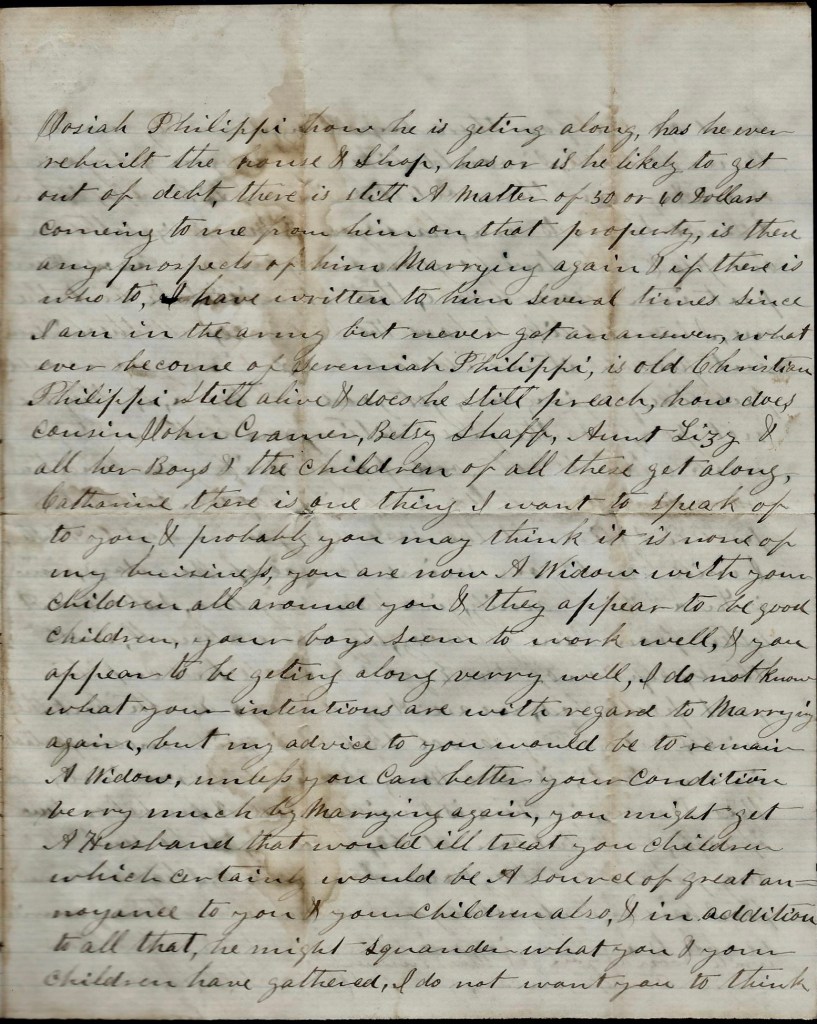 Josiah Philippi how he is geting along, has he ever
rebuilt the house & Shop, has or is he likely to get
out of debt, there is still A Matter of 30 or 40 Dollars
comeing to me from him on that property, is there
any prospects of him Marrying again & if there is
who to, I have written to him several times since
I am in the army but never got an answer, what
ever become of Jeremiah Philippi, is old Christian
Philippi still alive & does he still preach, how does
cousin John Cramer, Betsy Shaff, Aunt Lizzy &
all her Boys & the children of all these get along,
Catharine there is one thing I want to speak of
to you & probably you may think it is none of
my buisiness, you are now A Widow with your
children all around you & they appear to be good
children, your boys seem to work well, & you
appear to be geting along verry well, I do not know
what your intentions are with regard to Marrying
again, but my advice to you would be to remain
A Widow, unless you Can better your Condition
verry much by Marrying again, you might get
A Husband that would ill treat you children
which certainly would be A source of great an=
noyance to you & your Children also, & in addition
to all that, he might squander what you & your
children have gathered, I do not want you to think